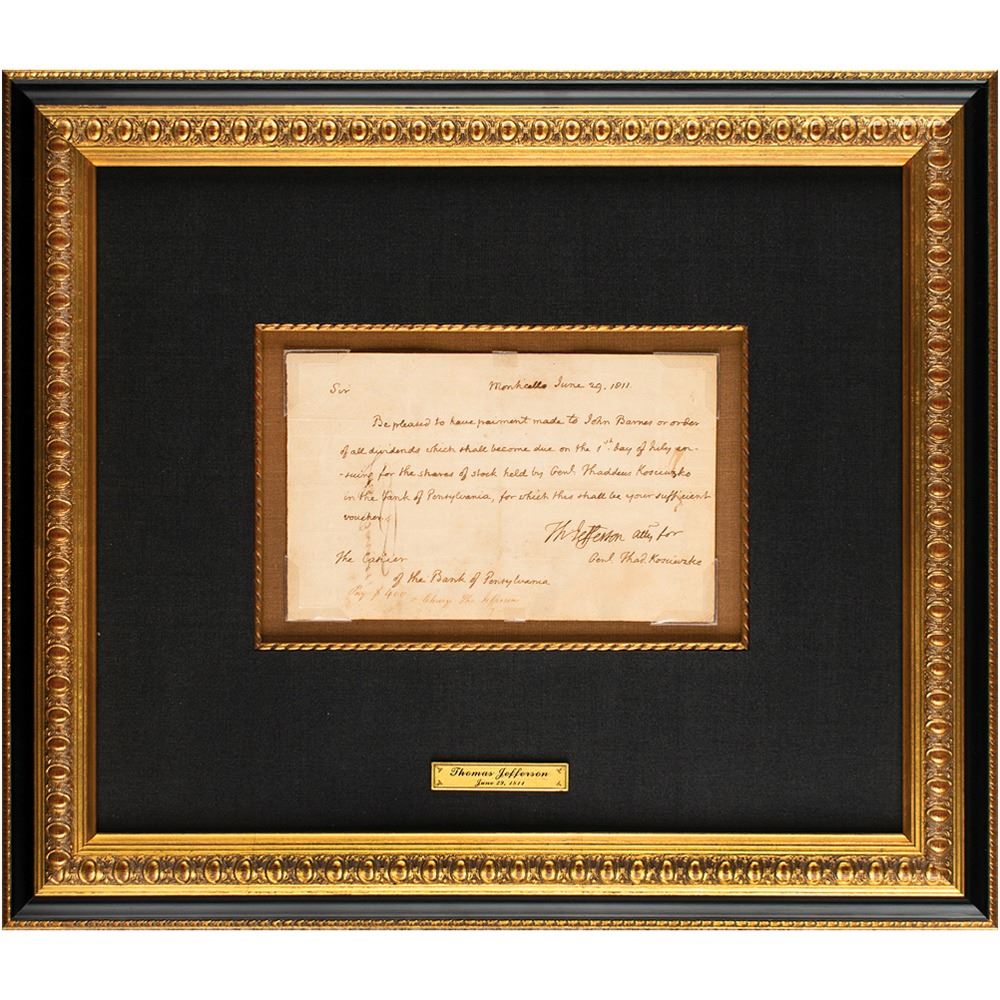 Sir Monticello June 29. 1811.
Be pleased to have paiment made to John Barnes or order
of all dividends which shall become due on the 1st. day of July en-
-suing for the shares of stock held by Genl. Thaddeus Kosciuzko
in the bank of Pensylvania, for which this shall be your sufficient
voucher.
Th Jefferson atty for
Genl. Thad. Kosciuzko
The Cashier
of the Bank of Pensylvania
Pay $ 400
Thomas Jefferson
June 29, 1811